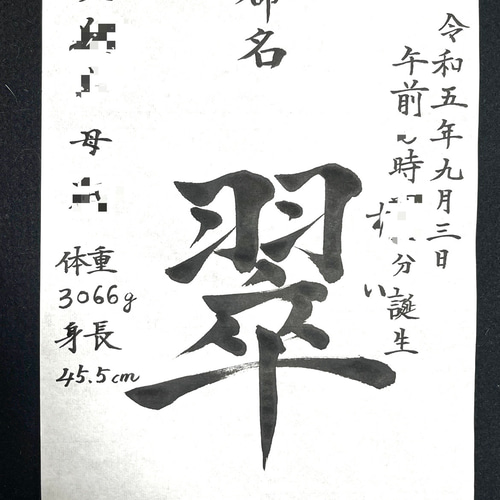 令和五年九月三日
午前 時 分誕生
命名
翠
い
母
体重
3066g
身長
45.5cm